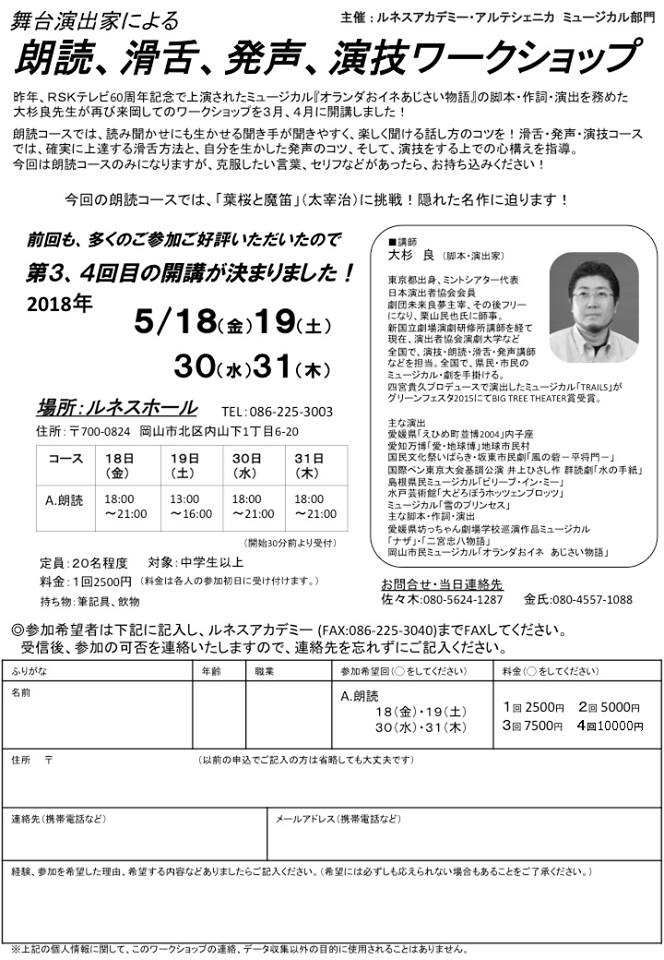 舞台演出家による
主催：ルネスアカデミー・アルテシェニカ ミュージカル部門
朗読、滑舌、発声、演技ワークショップ
昨年、RSKテレビ60周年記念で上演されたミュージカル『オランダおイネあじさい物語』の脚本・作詞・演出を務めた
大杉良先生が再び来岡してのワークショップを３月、４月に開講しました！
朗読コースでは、読み聞かせにも生かせる聞き手が聞きやすく、楽しく聞ける話し方のコツを！滑舌・発声・演技コース
では、確実に上達する滑舌方法と、自分を生かした発声のコツ、そして、演技をする上での心構えを指導。
今回は朗読コースのみになりますが、克服したい言葉、セリフなどがあったら、お持ち込みください！
今回の朗読コースでは、「葉桜と魔笛」（太宰治）に挑戦！隠れた名作に迫ります！
前回も、多くのご参加ご好評いただいたので
第３、４回目の開講が決まりました！
2018年
5/18(金)19(土)
30(水)31(木)
場所：ルネスホール TEL：086-225-3003
住所：〒700-0824 岡山市北区内山下1丁目6-20
コース 18日（金） 19日（土） 30日（水） 31日（木）
A.朗読 18:00～21:00 13:00～16:00 18:00～21:00 18:00～21:00
（開始30分前より受付）
定員：２０名程度 対象：中学生以上
料金：１回2500円 （料金は各人の参加初日に受け付けます。）
持ち物：筆記具、飲物
■講師
大杉 良 （脚本・演出家）
東京都出身、ミントシアター代表
日本演出者協会会員
劇団未来良夢主宰、その後フリー
になり、栗山民也氏に師事。
新国立劇場演劇研修所講師を経て
現在、演出者協会演劇大学など
全国で、演技・朗読・滑舌・発声講師
などを担当。全国で、県民・市民の
ミュージカル・劇を手掛ける。
四宮貴久プロデュースで演出したミュージカル「TRAILS」が
グリーンフェスタ2015にてBIG TREE THEATER賞受賞。
主な演出
愛媛県「えひめ町並博2004」内子座
愛知万博「愛・地球博」地球市民村
国民文化祭いばらき・坂東市民劇「風の砦－平将門－」
国際ペン東京大会基調公演 井上ひさし作 群読劇「水の手紙」
島根県民ミュージカル「ビリーブ・イン・ミー」
水戸芸術館「大どろぼうホッツェンプロッツ」
ミュージカル「雪のプリンセス」
主な脚本・作詞・演出
愛媛県坊っちゃん劇場学校巡演作品ミュージカル
「ナザ」・「二宮忠八物語」
岡山市民ミュージカル「オランダおイネ あじさい物語」
お問合せ・当日連絡先
佐々木:080-5624-1287 金氏:080-4557-1088
◎参加希望者は下記に記入し、ルネスアカデミー (FAX:086-225-3040)までFAXしてください。
受信後、参加の可否を連絡いたしますので、連絡先を忘れずにご記入ください。
ふりがな 年齢 職業 参加希望回（○をしてください） 料金（○をしてください）
名前
A.朗読
18（金）・19（土）
30（水）・31（木）
１回 2500円 ２回 5000円
３回 7500円 ４回10000円
住所 〒 （以前の申込でご記入の方は省略しても大丈夫です）
連絡先（携帯電話など） メールアドレス（携帯電話など）
経験、参加を希望した理由、希望する内容などありましたらご記入ください。（希望には必ずしも応えられない場合もあることをご了承ください。）
※上記の個人情報に関して、このワークショップの連絡、データ収集以外の目的に使用されることはありません。